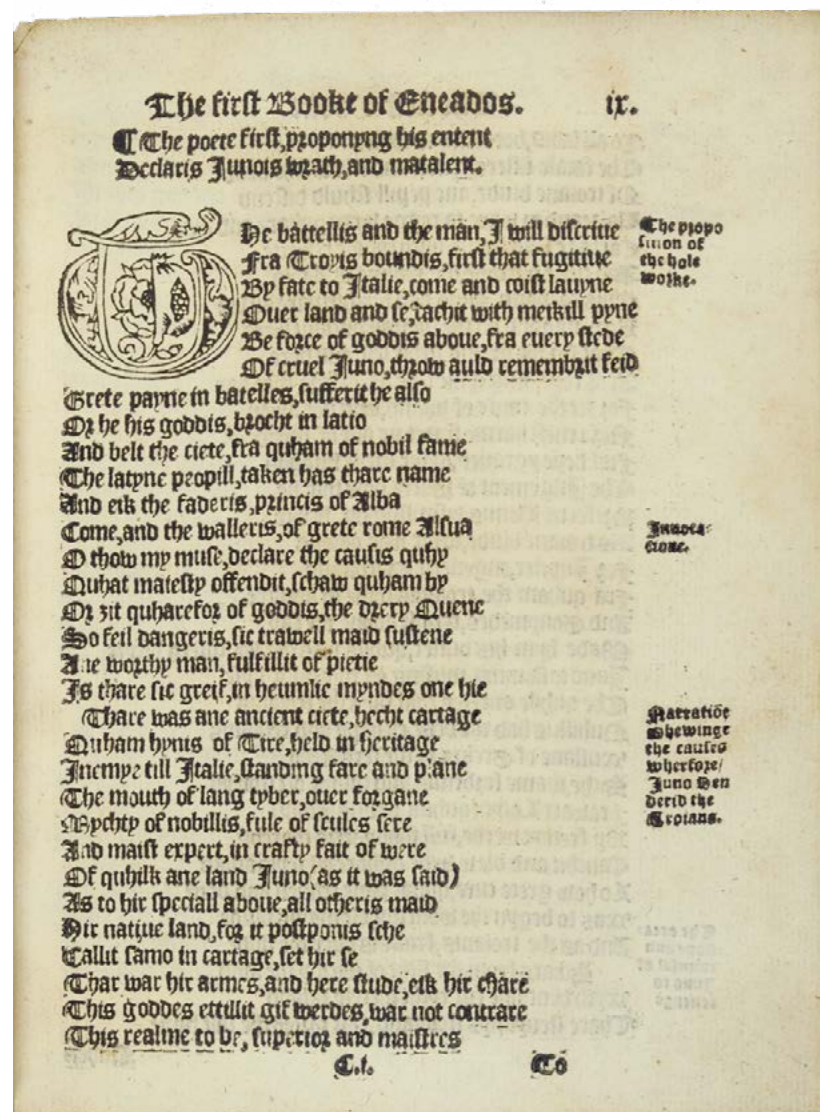 The first Booke of Eneados. ix.
¶ The poete first, proponyng his entent
Declaris Junois wrath, and matalent.
THe battellis and the man, I will discriue
Fra Troyis boundis, first that fugitiue
By fate to Italie, come and coist lauyne
Ouer land and se, cachit with meikill pyne
Be force of goddis aboue, fra euery stede
Of cruel Juno, throw auld remembrit feid
Grete payne in batelles, sufferit he also
Or he his goddis, brocht in latio
And belt the ciete, fra quham of nobil fame
The latyne peopill, taken has thare name
And eik the faderis, princis of Alba
Come, and the walleris, of grete rome Alsua
O thow my muse, declare the causis quhy
Quhat maiesty offendit, schaw quham by
Or zit quharefor of goddis, the drery Quene
So feil dangeris, sic trawell maid sustene
Ane worthy man, fulfillit of pietie
Is thare sic greif, in heuinlie myndes one hie
Thare was ane ancient ciete, hecht cartage
Quham hynis of Tire, held in heritage
Inemye till Italie, standing fare and plane
The mouth of lang tyber, ouer forgane
Mychty of nobillis, fule of scules sere
And maist expert, in crafty fait of were
Of quhilk ane land Juno (as it was said)
As to hir speciall aboue, all otheris maid
Hir natiue land, for it postponis sche
Callit samo in cartage, set hir se
Thar war hir armes, and here stude, eik hir chare
This goddes ettillit gif werdes, war not contrare
This realme to be, superior and maistres
C.i. To
The propo
sition of
the hole
worke.
Inuoca-
cione.
Narratiōe
shewinge
the causes
wherfore/
Juno hen
derid the
Troians.